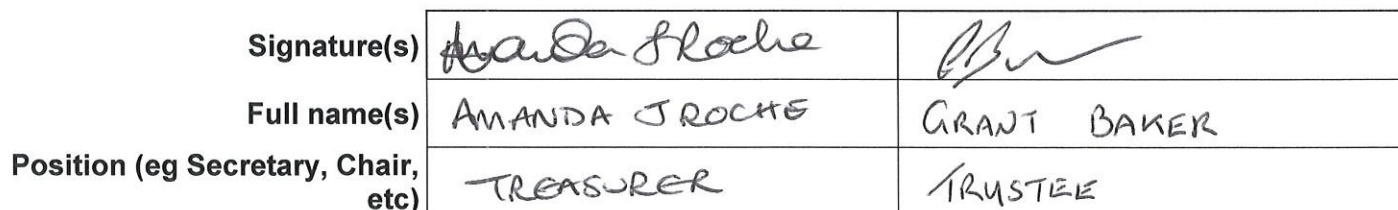 Signature(s) Amanda J Roche
Full name(s) AMANDA J ROCHE GRANT BAKER
Position (eg Secretary, Chair,
etc) TREASURER TRUSTEE